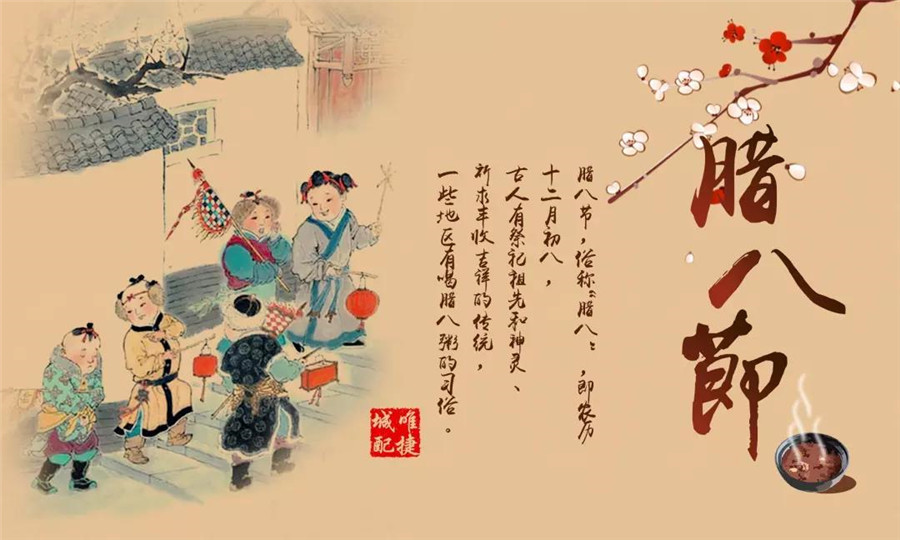 腊八節
腊八节，俗称“腊八”，即农历
十二月初八，
古人有祭祀祖先和神灵、
祈求丰收吉祥的传统，
一些地区有喝腊八粥的习俗。
唯捷
城配